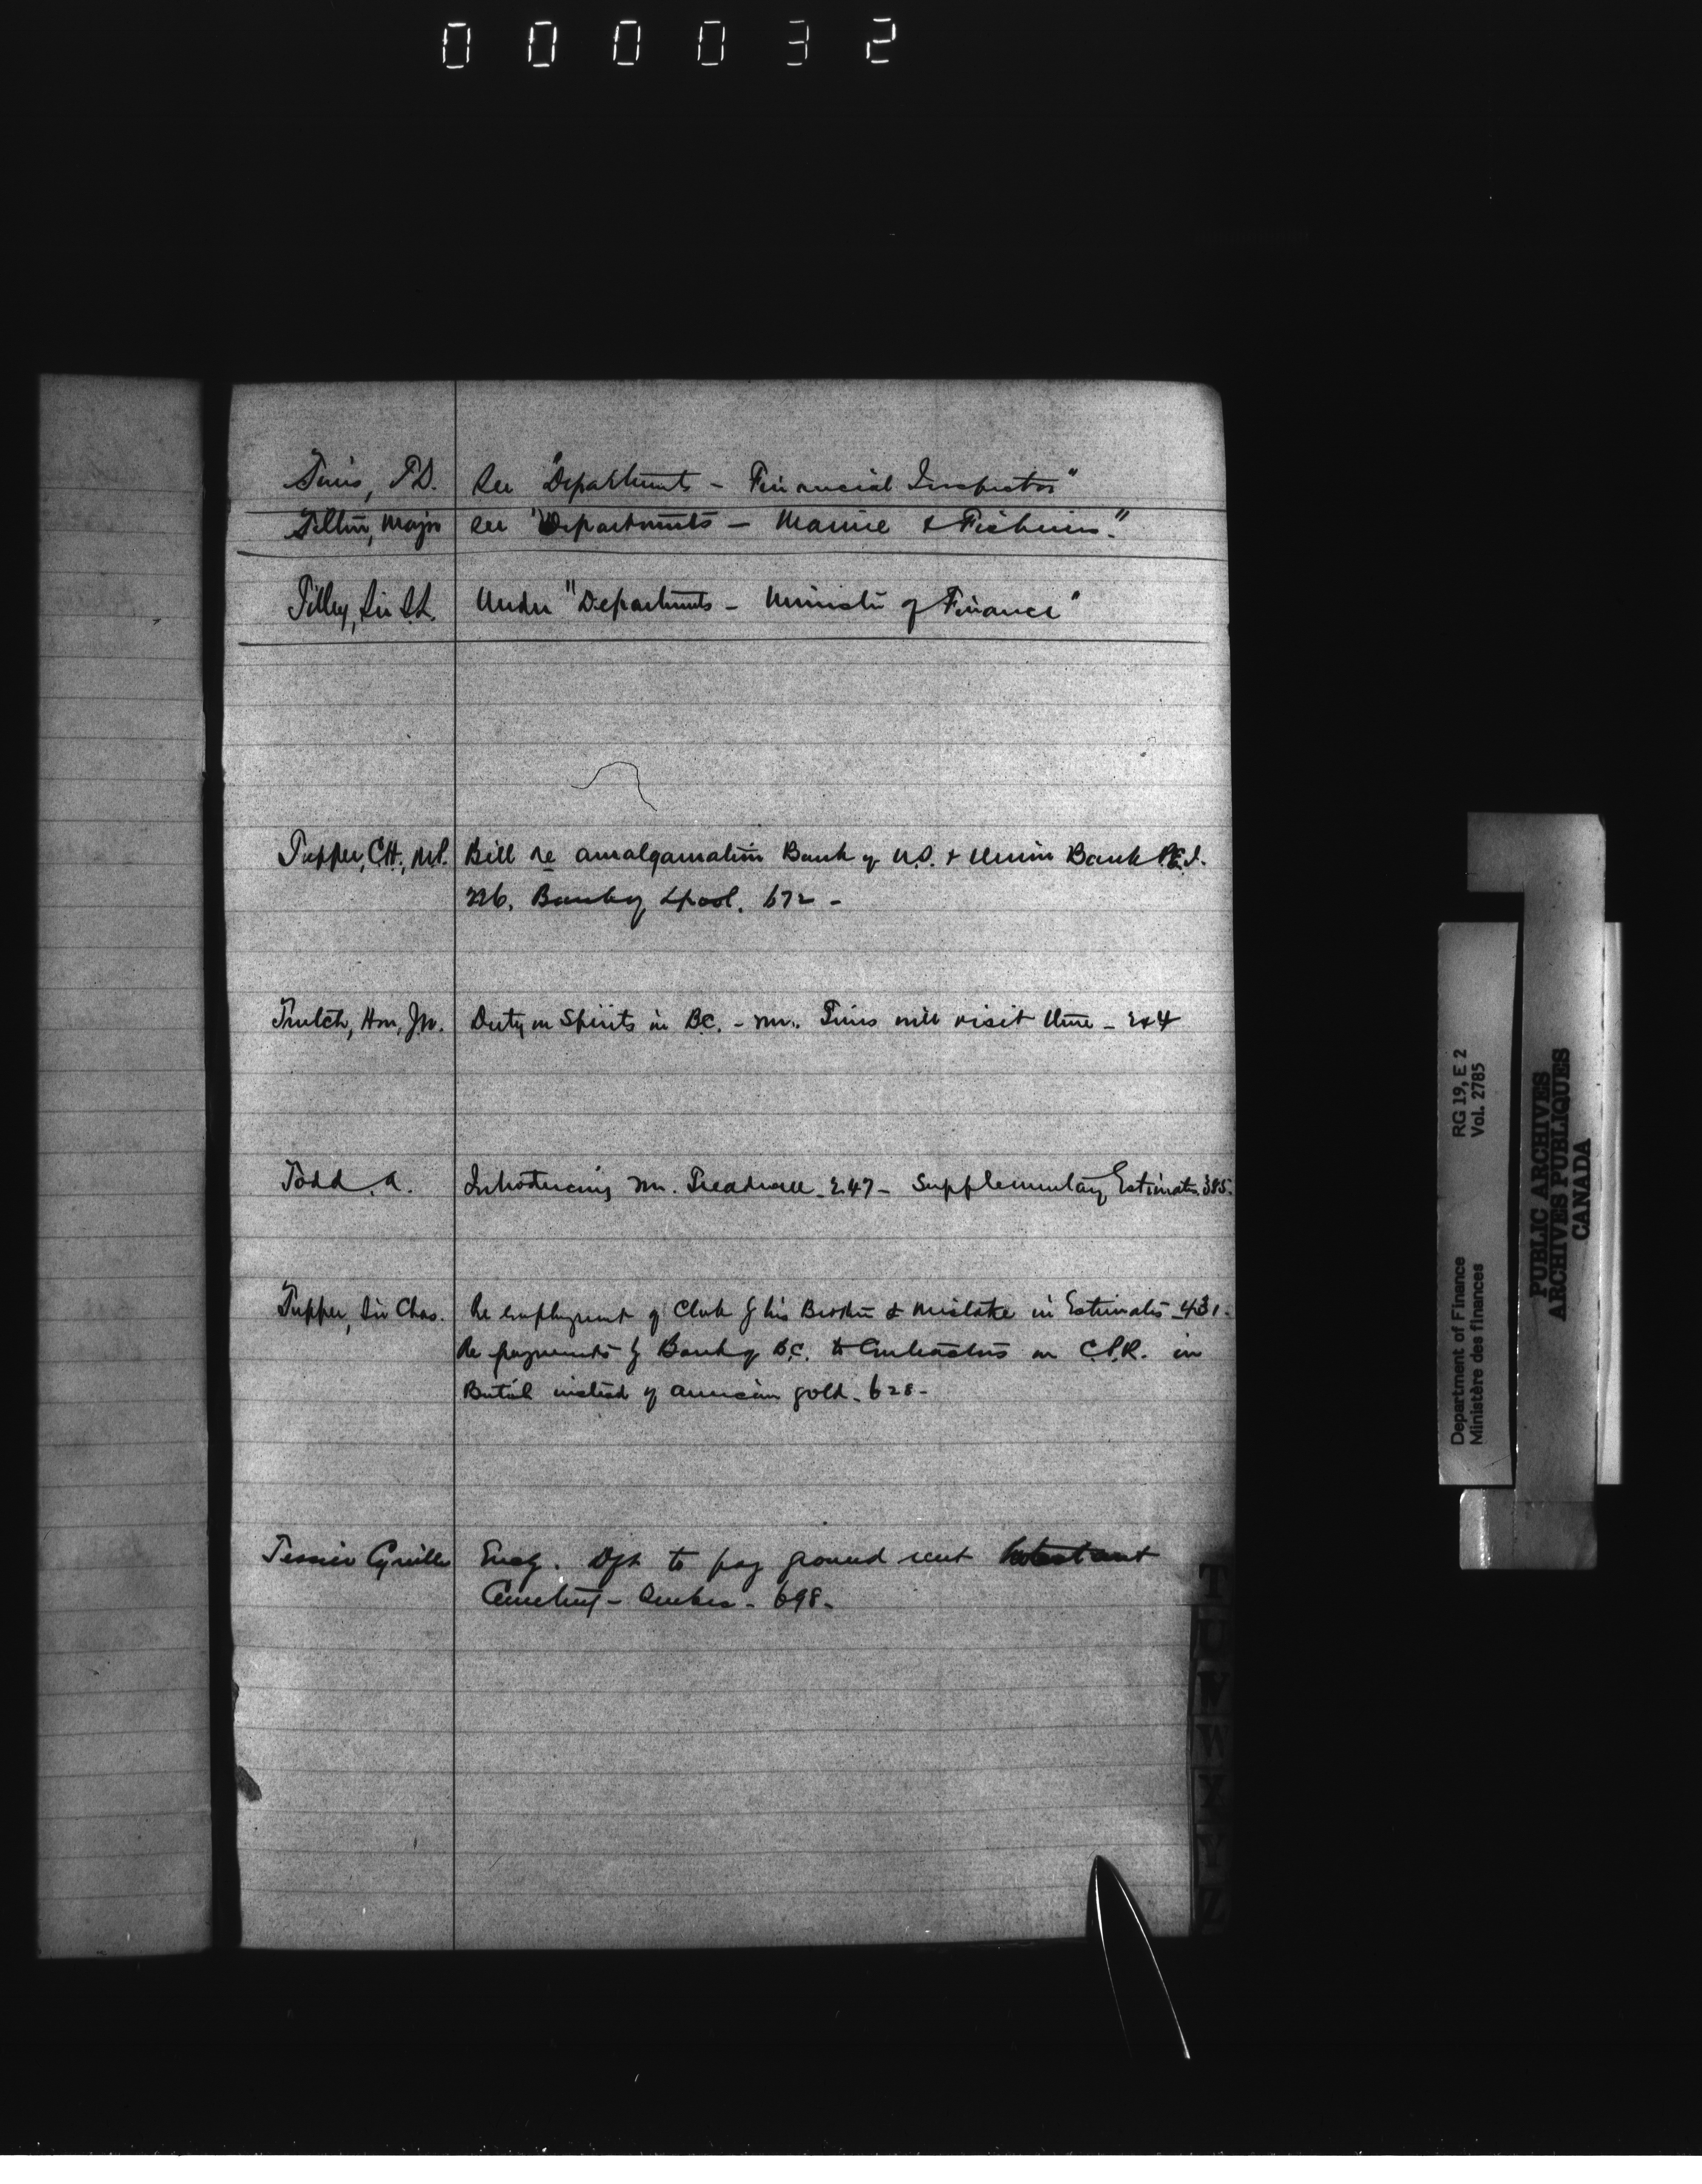 000032
Tims, T.D. See "Departments - Financial Inspector"
Tilton, Major see "Departments - Marine & Fisheries."
Tilley, Sir S.L. Under "Departments - Minister of Finance"
Tupper, C.H., M.P. Bill re amalgamation Bank of N.S. & Union Bank P.E.I.
226. Bank of Lpool. 672 -
Trutch, Hon, Jn. Duty on Spirits in B.C. - Mr. Tims will visit there - 244
Todd. A. Introducing Mr. Treadwell. 247 - Supplementary Estimates. 385.
Tupper, Sir Chas. Re employment of Clerk for his Brother & mistake in Estimates - 431 -
Re payments by Bank of B.C. to Contractors on C.P.R. in
British instead of American gold - 628 -
Tessier Cyrille Encg. Dft to pay ground rent Protestant
Cemetery - Quebec - 698 -
T
U
V
W
X
Y
Z
Department of Finance RG 19, E 2
Ministère des finances Vol. 2785
PUBLIC ARCHIVES
ARCHIVES PUBLIQUES
CANADA